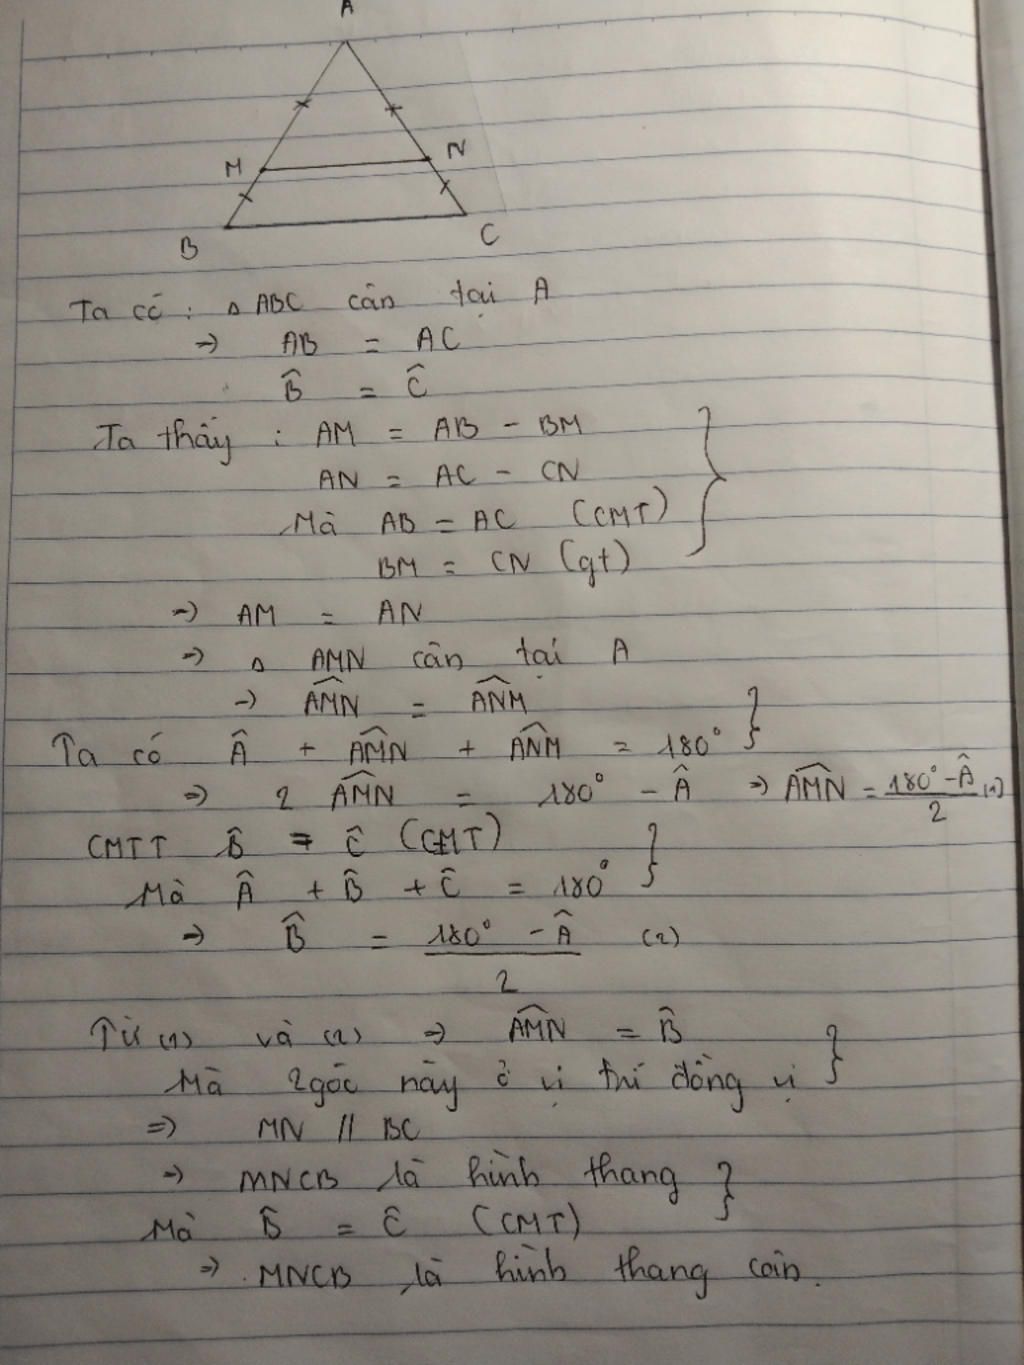 A
M
N
B
C
Ta có : △ ABC cân tại A
→ AB = AC
B̂ = Ĉ
Ta thấy : AM = AB - BM
AN = AC - CN
Mà AB = AC (CMT)
BM = CN (gt)
→ AM = AN
→ △ AMN cân tại A
→ \widehat{AMN} = \widehat{ANM}
Ta có Â + \widehat{AMN} + \widehat{ANM} = 180°
→ 2 \widehat{AMN} = 180° - Â → \widehat{AMN} = \frac{180° - Â}{2} (1)
CMTT B̂ = Ĉ (CMT)
Mà Â + B̂ + Ĉ = 180°
→ B̂ = \frac{180° - Â}{2} (2)
Từ (1) và (2) → \widehat{AMN} = B̂
Mà 2 góc này ở vị trí đồng vị
⇒ MN // BC
→ MNCB là hình thang
Mà B̂ = Ĉ (CMT)
→ MNCB là hình thang cân.